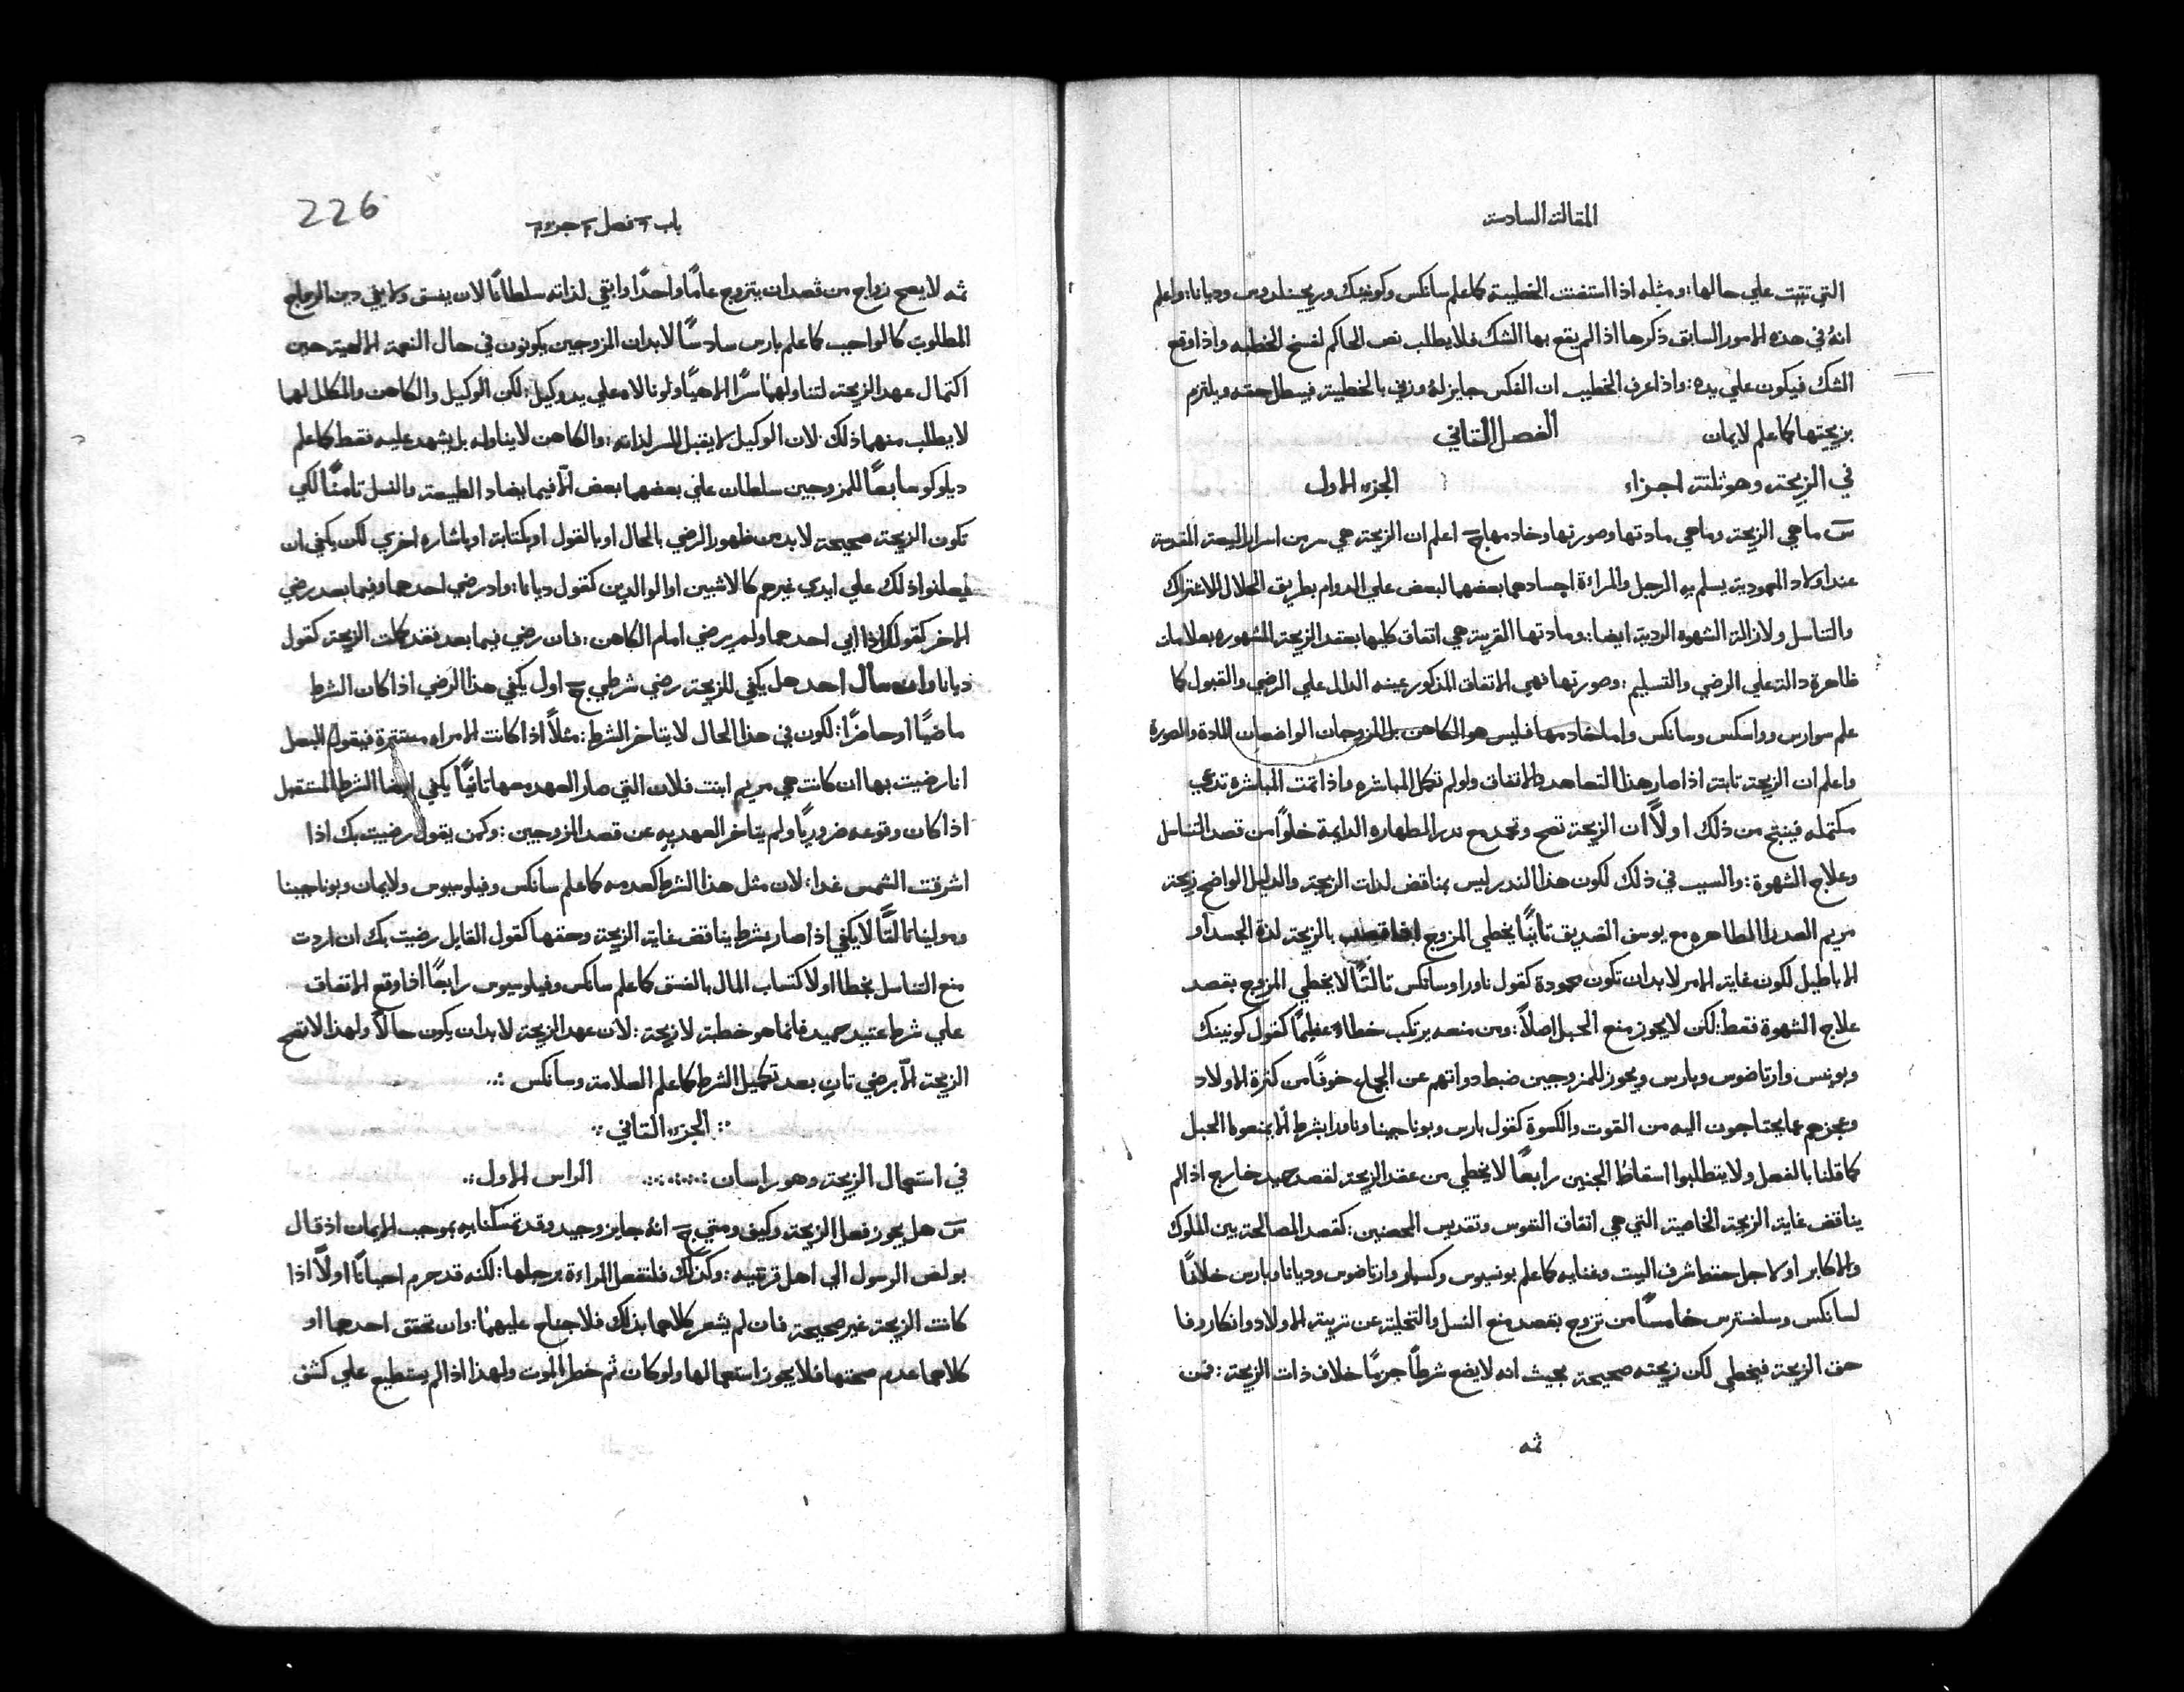 المقالة السادسة
التي تثبت علي حالها: ومثله اذا استفتت الخطيبة كما علم سانكس وكونينك وريجينلدوس وديانا: واعلم
انهُ في هذه الامور السابق ذكرها اذا لم يقع بها الشك فلا يطلب نص الحاكم لفسخ الخطبه واذا وقع
الشك فيكون علي يده: واذا عرف الخطيب ان الفكس جايز لهُ وزني بالخطيبة فيبطل حقه ويلتزم
بزيجتها كما علم لايمان الفصل الثاني
في الزيجة وهو ثلثة اجزاء الجزء الاول
س ما هي الزيجة وما هي مادتها وصورتها وخادمها ج اعلم ان الزيجة هي سر من اسرار البيعة المقدسة
عند اولاد المعمودية يسلم به الرجل والمراءة اجسادهما بعضهما لبعض علي الدوام بطريق الحلال للاشتراك
والتناسل ولازالة الشهوه الردية ايضا: ومادتها القريبة هي اتفاق كليهما بعقد الزيجة المشهوره بعلامات
ظاهرة دالة علي الرضي والتسليم: وصورتها فهي الاتفاق المذكور عينه الدال علي الرضي والقبول كما
علم سوارس وواسكس وسانكس واما خادمها فليس هو الكاهن بل المزوجان الواضعان المادة والصورة
واعلم ان الزيجة ثابتة اذا صار هذا التعاهد والاتفاق ولو لم تكمل المباشره واذا تمت المباشره تدعي
مكتمله فينتج من ذلك اولاً ان الزيجة تصح وتجمد مع ندر الطهاره الدايمة خلوًا من قصد التناسل
وعلاج الشهوة: والسبب في ذلك لكون هذا الندر ليس بمناقض لذات الزيجة والدليل الواضح زيجة
مريم العدرا الطاهره مع يوسف الصديق ثانيًا يخطي المزوج اذا قصد بالزيجة لذة الجسد او
الاباطيل لكون غاية الامر لابد ان تكون محمودة كقول ناورا وسانكس ثالثًا لا يخطي المزوج بقصد
علاج الشهوة فقط: لكن لا يجوز منع الحبل اصلاً: ومن منعه يرتكب خطاءً عظيمًا كقول كونينك
وبونس وارتاضوس وبارس ويجوز للمزوجين ضبط دواتهم عن الجماع خوفًا من كثرة الاولاد
وعجزهم عما يحتاجون اليه من القوت والكسوة كقول بارس وبوناجينا وناورا بشرط الاّ يمنعوا الحبل
كما قلنا بالفعل ولا يتطلبوا اسقاط الجنين رابعًا لا يخطي من عقد الزيجة لقصد حميد خارج اذا لم
يناقض غاية الزيجة الخاصية التي هي اتفاق النفوس وتقديس المحصنين: كقصد المصالحة بين الملوك
والاكابر او لاجل حفظ شرف البيت وغنايه كما علم بونسيوس وكسباو وارتاضوس وديانا وبارس خلافًا
لسانكس وسلفسترس خامسًا من تزوج بقصد منع النسل والتخلية عن تربية الاولاد وانكار وفا
حق الزيجة فيخطي لكن زيجته صحيحة بحيث انه لا يضع شرطًا جزمًا خلاف ذات الزيجة: فمن
ثمه
226
باب ٦ فصل ٢ جزو ٢
ثمه لا يصح زواج من قصد ان يتزوج عامًا واحدًا وابقي لذاته سلطانًا لان يفسق ولا يفي دين الزواج
المطلوب كالواجب كما علم بارس سادسًا لابد ان المزوجين يكونون في حال النعمة الالهية حين
اكتمال عهد الزيجة لتناولهما سرًا الاهيًا ولو نالاه علي يد وكيل: لكن الوكيل والكاهن والمكلل لهما
لا يطلب منهما ذلك لان الوكيل لا يقبل السر لذاته: والكاهن لا يناوله بل يشهد عليه فقط كما علم
ديلوكو سابعًا للمزوجين سلطان علي بعضهما بعض الاّ فيما يضاد الطبيعة والنسل ثامنًا لكي
تكون الزيجة صحيحة لابد من ظهور الرضي بالحال او بالقول او بكتابة او باشاره اخري لكن يكفي ان
يعلنوا ذلك علي ايدي غيرهم كالاشبين او الوالدين كقول ديانا: واد رضي احدهما وفيما بعد رضي
الاخر كقولك اذا ابي احدهما ولم يرضي امام الكاهن: فان رضي فيما بعد فقد كملت الزيجة كقول
ديانا وان سال احد هل يكفي للزيجة رضي شرطي ج اول يكفي هذا الرضي اذا كان الشرط
ماضيًا او حاضرًا: لكون في هذا الحال لا يتاخر الشرط: مثلاً اذا كانت الامراه مستترة فيقول البعل
انا رضيت بها ان كانت هي مريم ابنت فلان التي صار العهد معها ثانيًا يكفي ايضا الشرط المستقبل
اذا كان وقوعه ضروريًا ولم يتاخر العهد به عن قصد المزوجين: وكمن يقول رضيت بك اذا
اشرقت الشمس غدا: لان مثل هذا الشرط كعدمه كما علم سانكس وفيلوسيوس ولايمان وبوناجينا
ومولينا ثالثًا لا يكفي اذا صار بشرط يناقض غاية الزيجة وحقها كقول القايل رضيت بك ان اردت
منع التناسل بخطا او لاكتساب المال بالفسق كما علم سانكس وفيلوسيوس رابعًا اذا وقع الاتفاق
علي شرط عتيد حميد فانما هو خطبة لا زيجة: لان عهد الزيجة لابد ان يكون حالاً ولهذا لا تصح
الزيجة الاّ برضي ثان بعد تكميل الشرط كما علم العلامة وسانكس
الجزء الثاني
في استعمال الزيجة وهو راسان الراس الاول
س هل يجوز فعل الزيجة وكيف ومتي ج انهُ جايز وجيد وقد تمسكنا به بموجب الايمان اذ قال
بولص الرسول الي اهل قرنتيه: وكذلك فلتفعل المراءة برجلها: لكنه قد حرم احيانًا اولاً اذا
كانت الزيجة غير صحيحة فان لم يشعر كلاهما بذلك فلا جناح عليهما: وان تحقق احدهما او
كلاهما عدم صحتها فلا يجوز استعمالها ولو كان ثم خطر الموت ولهذا اذا لم يستطيع علي كشف